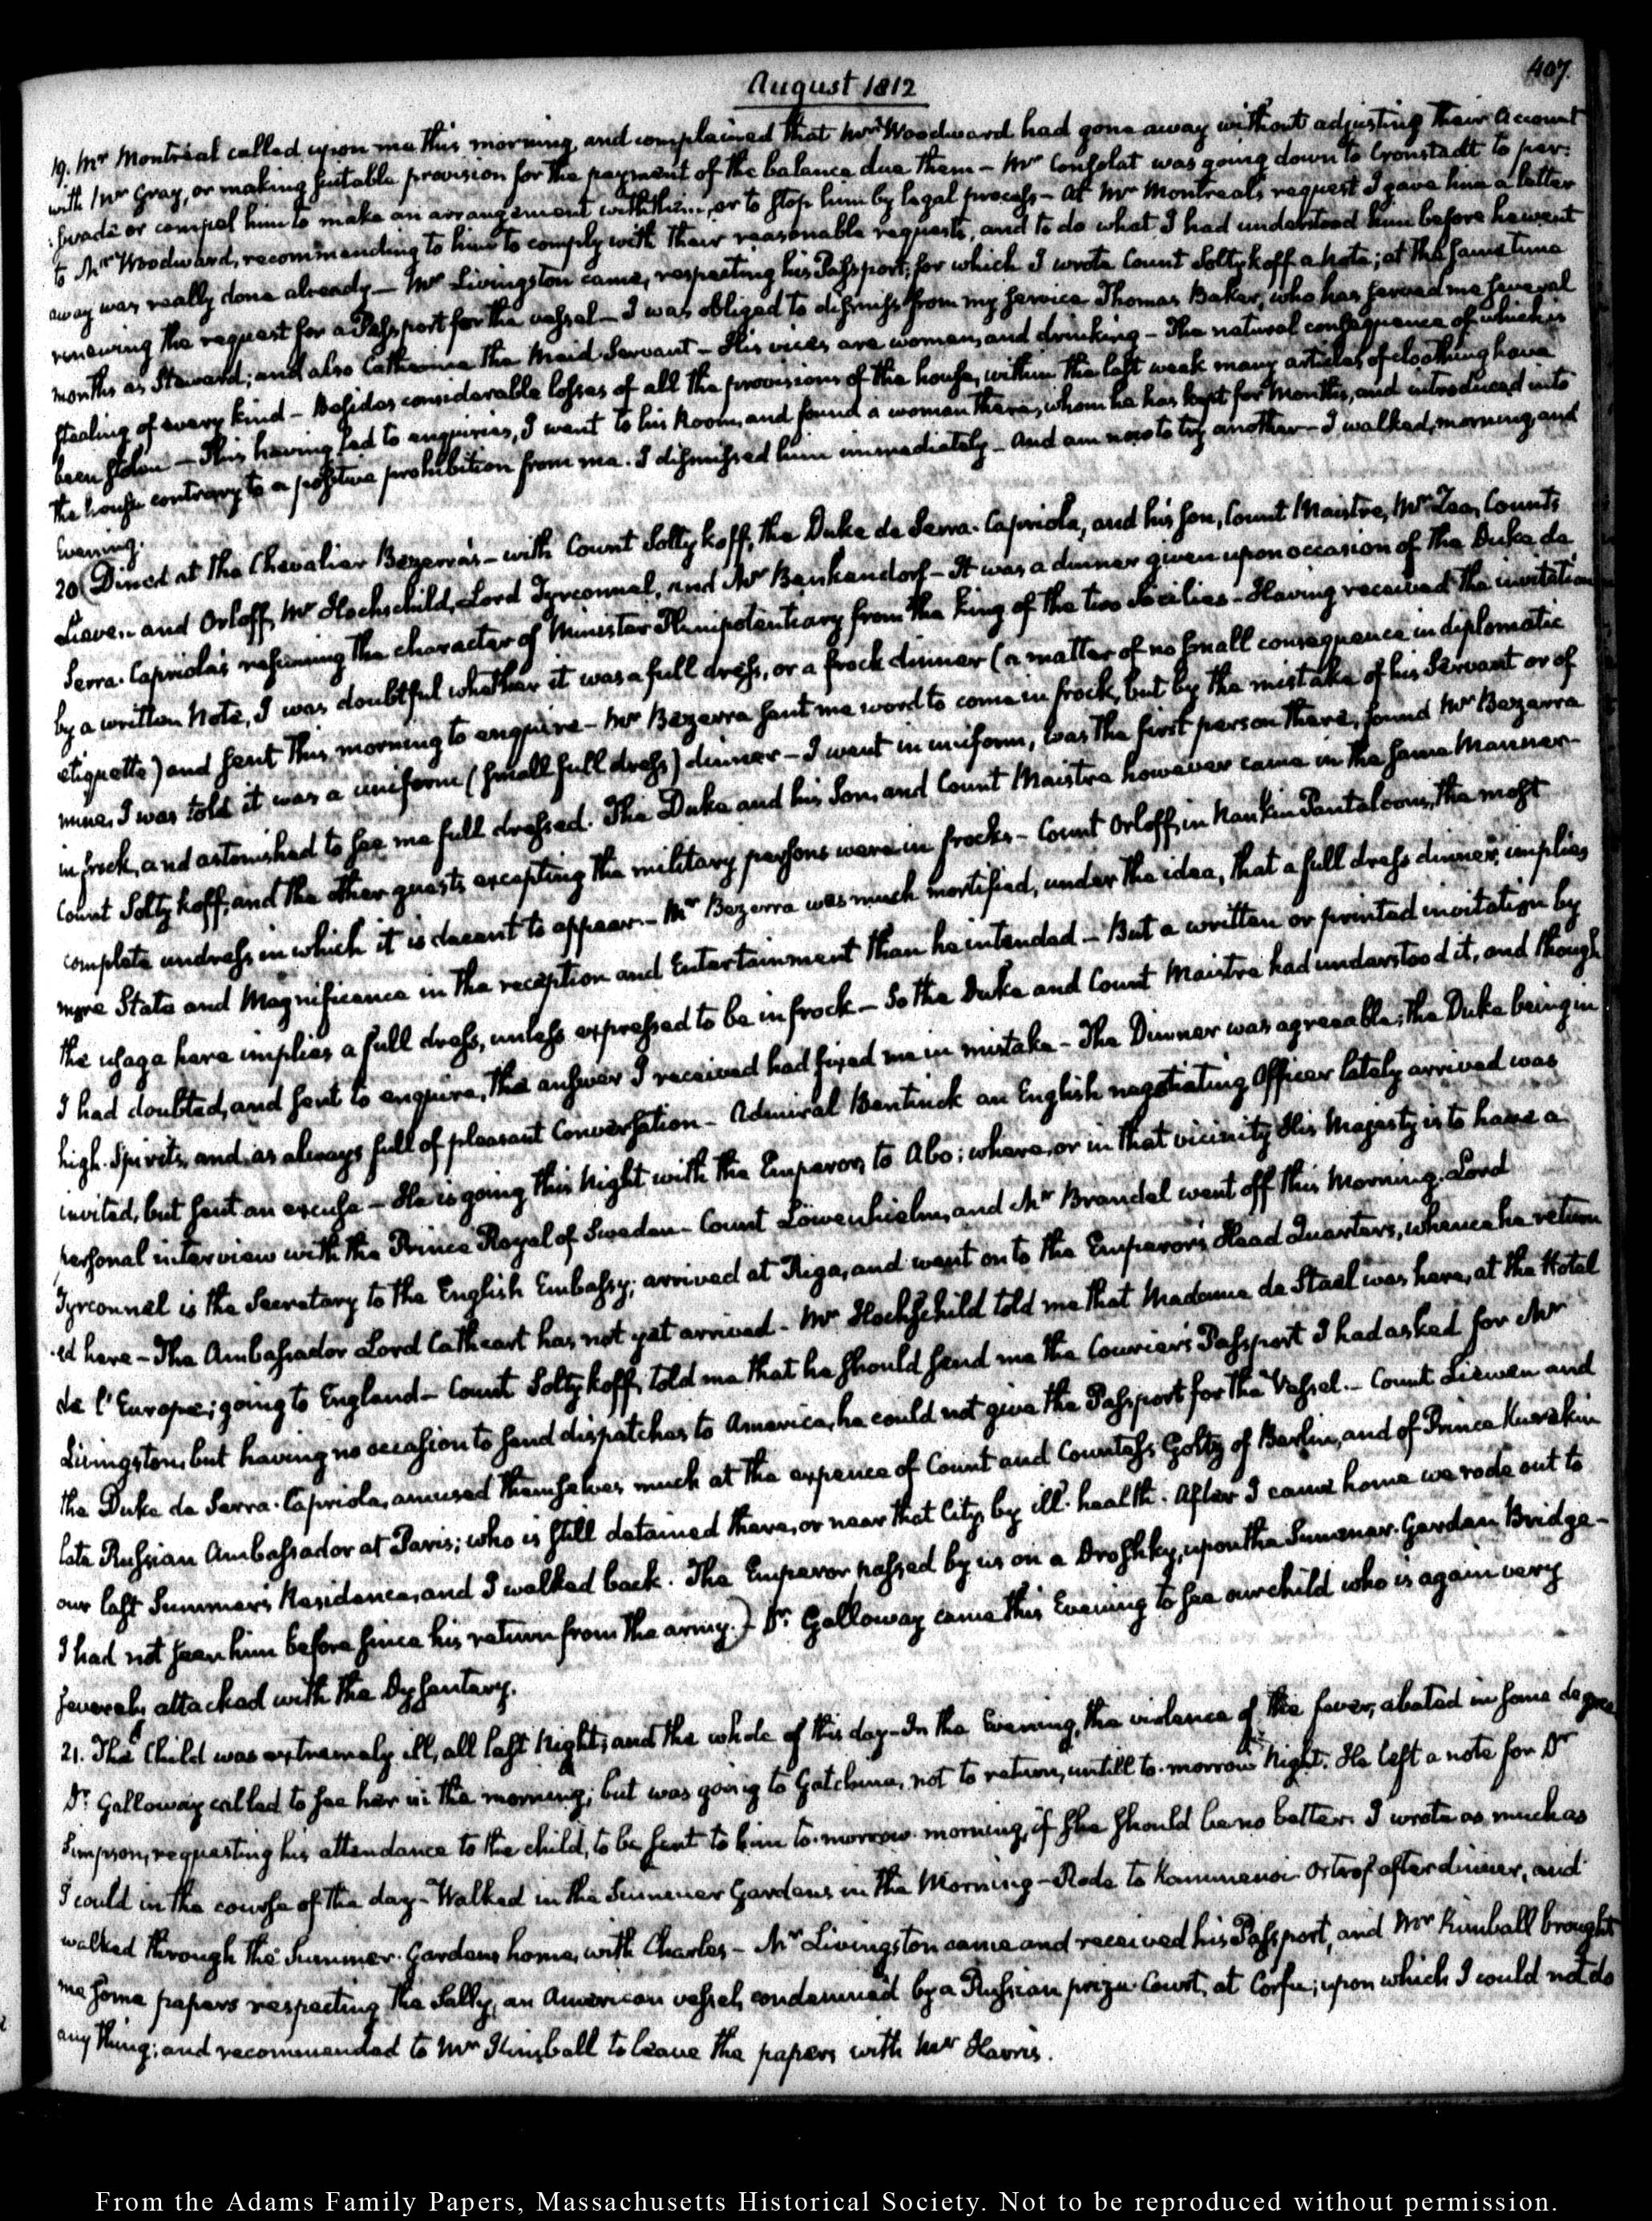 407.
August 1812
19. Mr Montréal called upon me this morning, and complained that Mr Woodward had gone away without adjusting their Account
with Mr Gray, or making suitable provision for the payment of the balance due them — Mr Consolat was going down to Cronstadt to per-
suade or compel him to make an arrangement with them, or to stop him by legal process — At Mr Montreal's request I gave him a letter
to Mr Woodward, recommending to him to comply with their reasonable requests, and to do what I had understood him before he went
away was really done already — Mr Livingston came, respecting his Passport; for which I wrote Count Soltykoff a Note; at the same time
renewing the request for a Passport for the vessel — I was obliged to dismiss from my service Thomas Baker, who has served me several
months as Steward; and also Catherine the Maid Servant — His vices are women, and drinking — The natural consequence of which is
stealing of every kind — Besides considerable losses of all the provisions of the house, within the last week many articles of cloathing have
been stolen — This having led to enquiries, I went to his Room, and found a woman there, whom he has kept for Months, and introduced into
the house contrary to a positive prohibition from me. I dismissed him immediately — And am now to try another — I walked, morning and
Evening.
20. (Dined at the Chevalier Bezerra's — with Count Soltykoff, the Duke de Serra-Capriola, and his Son, Count Maistre, Mr Zea, Counts
Lieven and Orloff, Mr Hochschild, Lord Tyrconnel, and Mr Benkendorf — It was a dinner given upon occasion of the Duke de
Serra-Capriola's resuming the character of Minister Plenipotentiary from the King of the two Sicilies — Having received the invitation
by a written Note, I was doubtful whether it was a full dress, or a frock dinner (a matter of no small consequence in diplomatic
etiquette) and sent this morning to enquire — Mr Bezerra sent me word to come in frock, but by the mistake of his Servant or of
mine, I was told it was a uniform (small full dress) dinner — I went in uniform, was the first person there, found Mr Bezerra
in frock, and astonished to see me full dressed. The Duke and his Son, and Count Maistre however came in the same Manner —
Count Soltykoff, and the other guests excepting the military persons were in frocks — Count Orloff, in Nankin Pantaloons, the most
complete undress in which it is decent to appear — Mr Bezerra was much mortified, under the idea, that a full dress dinner, implies
more State and Magnificence in the reception and Entertainment than he intended — But a written or printed invitation by
the usage here implies a full dress, unless expressed to be in frock — So the Duke and Count Maistre had understood it, and though
I had doubted, and sent to enquire, the answer I received had fixed me in mistake — The Dinner was agreeable; the Duke being in
high Spirits, and as always full of pleasant Conversation — Admiral Bentinck an English negotiating Officer lately arrived was
invited, but sent an excuse — He is going this Night with the Emperor, to Abo; where, or in that vicinity His Majesty is to have a
personal interview with the Prince Royal of Sweden — Count Löwenhielm, and Mr Brandel went off this Morning. Lord
Tyrconnel is the Secretary to the English Embassy; arrived at Riga, and went on to the Emperor's Head Quarters, whence he return-
ed here — The Ambassador Lord Cathcart has not yet arrived — Mr Hochschild told me that Madame de Stael was here, at the Hotel
de l'Europe; going to England — Count Soltykoff, told me that he should send me the Courier's Passport I had asked for Mr
Livingston, but having no occasion to send dispatches to America, he could not give the Passport for the Vessel. — Count Lieuen and
the Duke de Serra-Capriola, amused themselves much at the expence of Count and Countess Goltz of Berlin, and of Prince Kurakin
late Russian Ambassador at Paris; who is still detained there, or near that City, by ill health. After I came home we rode out to
our last Summer's Residence, and I walked back. The Emperor passed by us on a Droshky, upon the Summer-Garden Bridge —
I had not seen him before since his return from the army.) Dr. Galloway came this Evening to see our child who is again very
severely attacked with the Dysentary.
21. The Child was extremely ill, all last Night, and the whole of this day — In the Evening, the violence of the fever, abated in some degree
Dr. Galloway called to see her in the morning; but was going to Gatchina, not to return, untill to-morrow Night. He left a note for Dr
Simpson, requesting his attendance to the child, to be sent to him to-morrow morning, if she should be no better. I wrote as much as
I could in the course of the day — Walked in the Summer Gardens in the Morning — Rode to Kammenoi-Ostrof after dinner, and
walked through the Summer-Gardens home, with Charles — Mr Livingston came and received his Passport, and Mr Kimball brought
me some papers respecting the Sally, an American vessel, condemned by a Russian prize-Court, at Corfu; upon which I could not do
any thing; and recommended to Mr Kimball to leave the papers with Mr Harris.
From the Adams Family Papers, Massachusetts Historical Society. Not to be reproduced without permission.